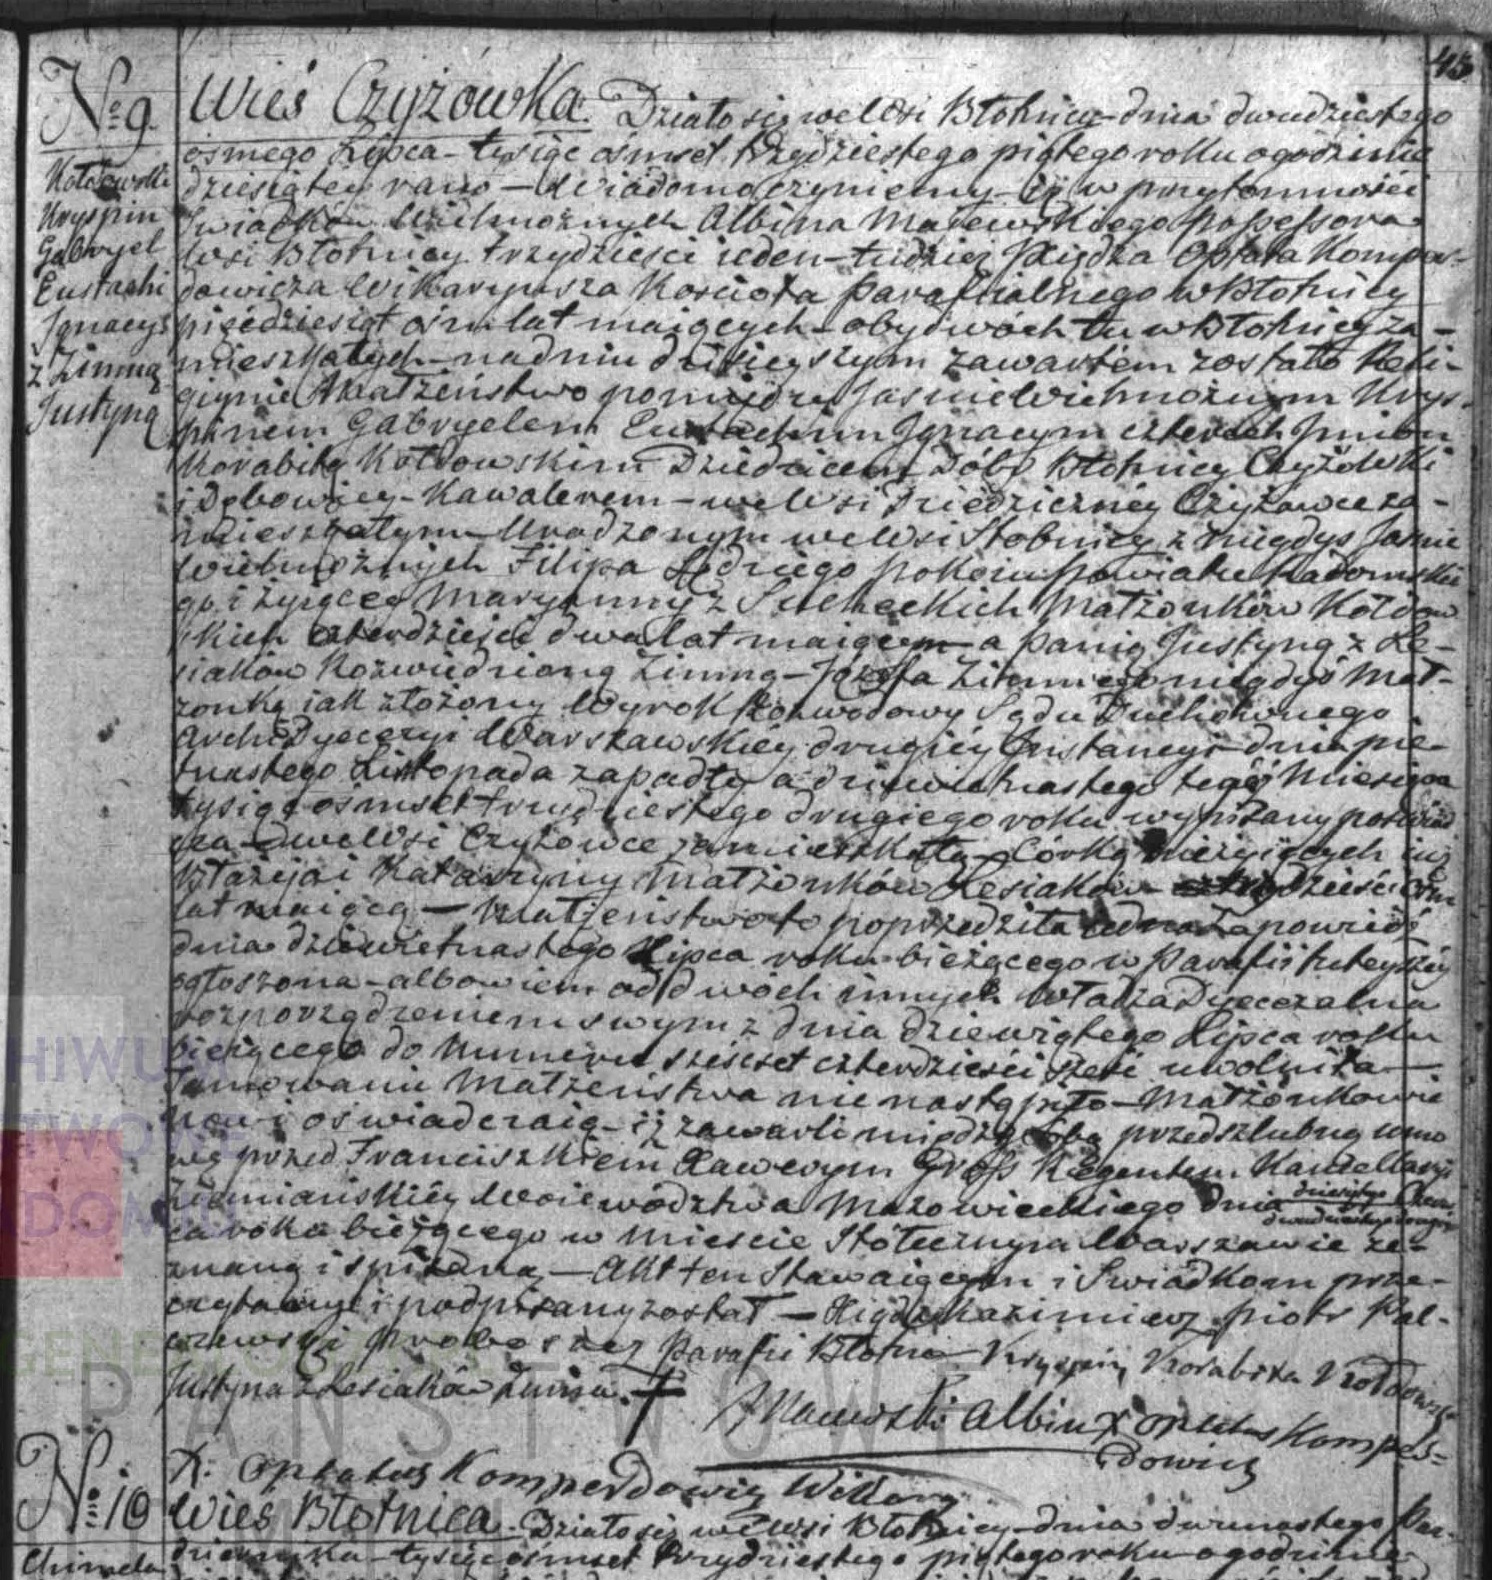 45
No 9.
Kołdowski
Kryspin
Gabryel
Eustachi
Ignacy 4
z Zimną
Justyną
Wieś Czyżówka. Działo się we Wsi Błotnicy dnia dwudziestego
ósmego Lipca - tysiąc ośmset trzydziestego piątego roku o godzinie
dziesiątey rano — Wiadomo czyniemy iż w przytomności
Swiadków Wielmożnych Albina Majewskiego possessora
Wsi Błotnicy trzydzieści ieden - tudzież Xiędza Optata Komper-
dowicza Wikaryusza Kościoła parafialnego w Błotnicy
pięćdziesiąt ośm lat maiących - obydwóch tu w Błotnicy za-
mieszkałych - na dniu dzisieyszym zawartem zostało Reli-
giynie Małżeństwo pomiędzy Jaśnie Wielmożnym Krys-
pinem Gabryelem Eustachim Ignacym czterech Imion
Korabitą Kołdowskim Dziedzicem Dóbr Błotnicy Czyżówki
i Dębowicy - Kawalerem - we Wsi Dziedziczney Czyżówce za-
mieszkałym - Urodzonym we Wsi Stobnicy z niegdys Jaśnie
Wielmożnych Filipa Sędziego pokoiu powiatu Radomskie
go i żyiącey Maryanny z Sucheckich Małżonków Kołdow
skich czterdzieści dwa lat maiącym - a Panią Justyną z Le-
siaków Rozwiedzioną Zimną - Józefa Zimnego niegdyś Mał-
żonką iak złożony Wyrok Rozwodowy Sądu Duchownego
Archi Dyecezyi Warszawskiéy drugiéy Instancyi dnia pię-
tnastego Listopada zapadły a dziewietnastego tegoż Miesiąca
tysiąc ośmset trzydziestego drugiego roku wypisany poświad
cza - we Wsi Czyżówce zamieszkałą - Córką nieżyiących iuż
Błażeja i Katarzyny Małżonków Lesiaków - trzydzieści ośm
lat maiącą — Małżeństwo to poprzedziła iedna Zapowiedź
dnia dziewietnastego Lipca roku bieżącego w Parafii tuteyszéy
ogłoszona - albowiem od dwóch innych Władza Dyecezalna
rozporządzeniem swym z dnia dziewiątego Lipca roku
bieżącego do Numeru sześćset czterdzieści sześć uwolniła —
Tamowanie Małżeństwa nie nastąpiło - Małżonkowie
nowi oświadczaią - iż zawarli między sobą przedszlubną umo
wę przed Franciszkiem Xawerym Gross Regentem Kancellaryi
Ziemiańskiéy Woiewództwa Mazowieckiego dnia dziesiątego Czerw
dwudziestego drugiego
ca roku bieżącego w Mieście Stołecznym Warszawie ze-
znaną i spisaną — Akt ten Stawaiącym i Swiadkom prze-
czytany i podpisany został — Xiądz Kazimierz Piotr Pal-
czewski proboszcz Parafii Błotnica Kryspin Korabita Kołdowski
Justyna z Lesiaków Zimna.
Majewski Albin X Optatus Komper-
dowicz
X. Optatus Komperdowicz Wikary
No 10
Wieś Błotnica. Działo się we Wsi Błotnicy - dnia dwunastego Paź-
Chmiela
dziernika - tysiąc ośmset trzydziestego piątego roku - o godzinie